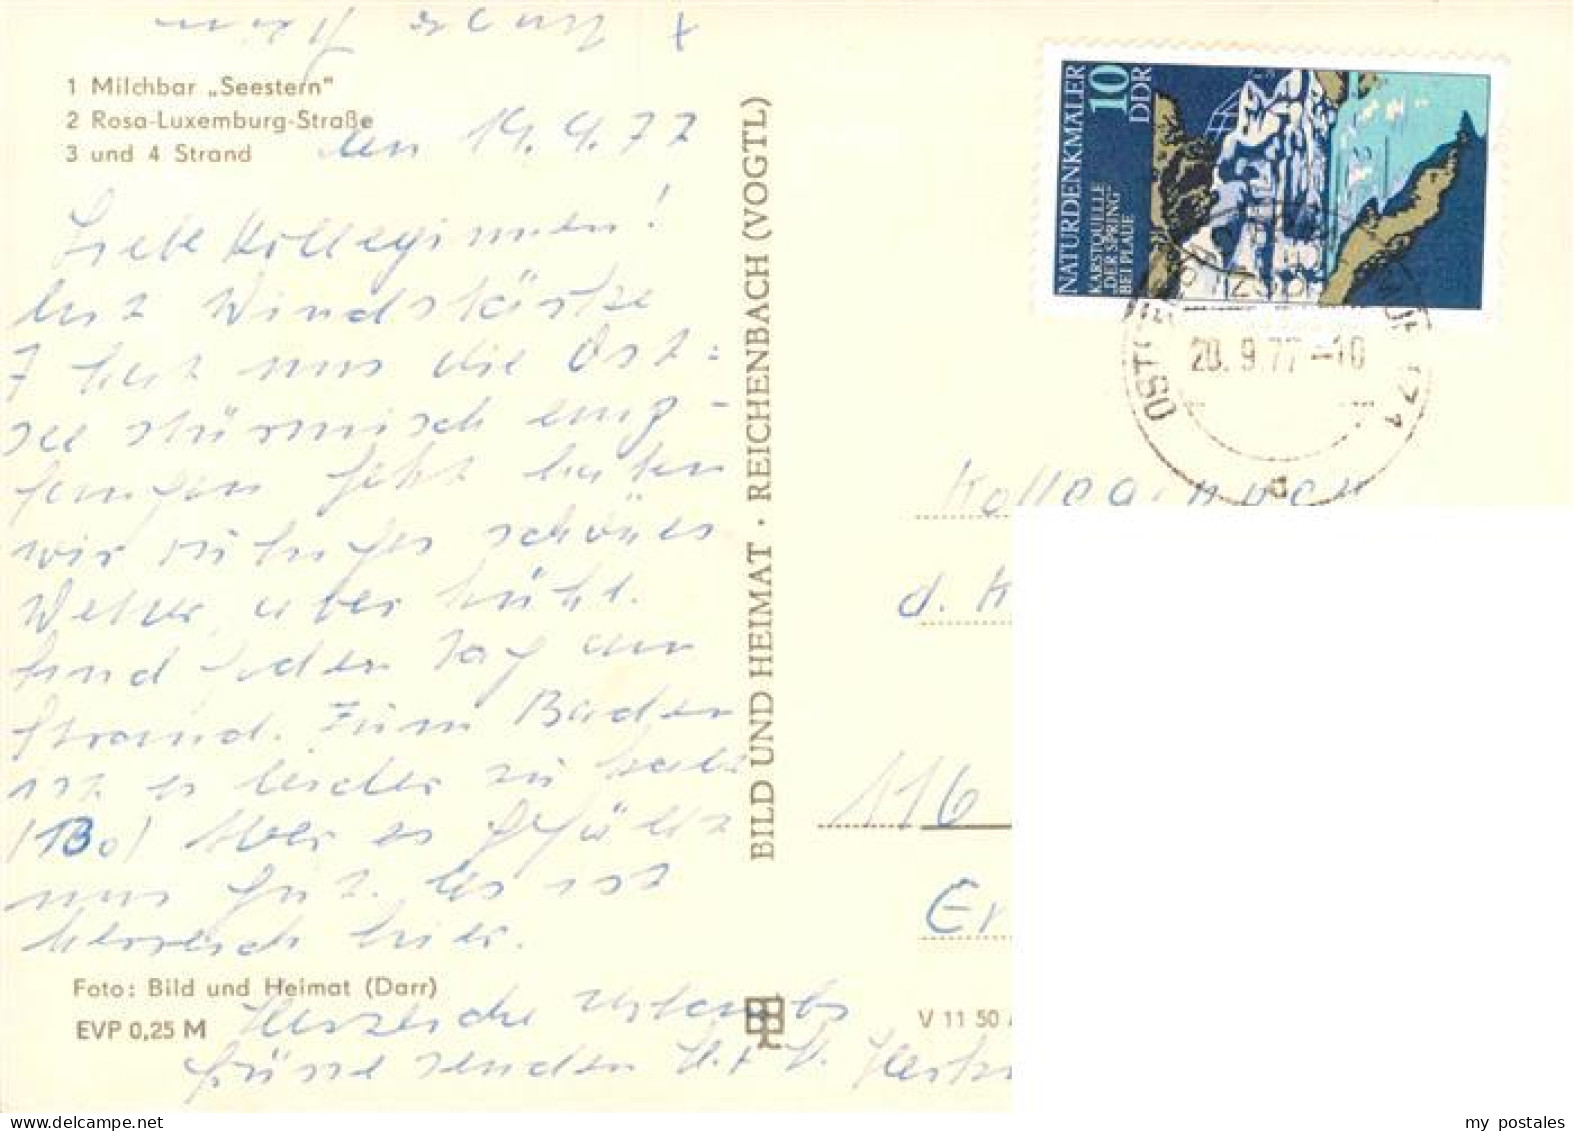 1 Milchbar „Seestern"
2 Rosa-Luxemburg-Straße
3 und 4 Strand
den 19.9.77
Liebe Kolleginnen!
Mit Windstärke
7 hat uns die Ost=
see stürmisch emp-
fangen jetzt haben
wir ruhiges schönes
Wetter, aber kühl.
Sind jeden Tag am
Strand. Zum Baden
ist es leider zu kalt
(13°) Aber es gefällt
uns gut. Es ist
herrlich hier.
Herzliche Urlaubs
grüße senden H. + H.
Foto: Bild und Heimat (Darr)
EVP 0,25 M
BILD UND HEIMAT · REICHENBACH (VOGTL)
V 11 50
NATURDENKMÄLER 10
DDR
KARSTQUELLE
„DER SPRING"
BEI PLAUE
20.9.77-10
Kolleginnen
d. K
116
Er
my postales